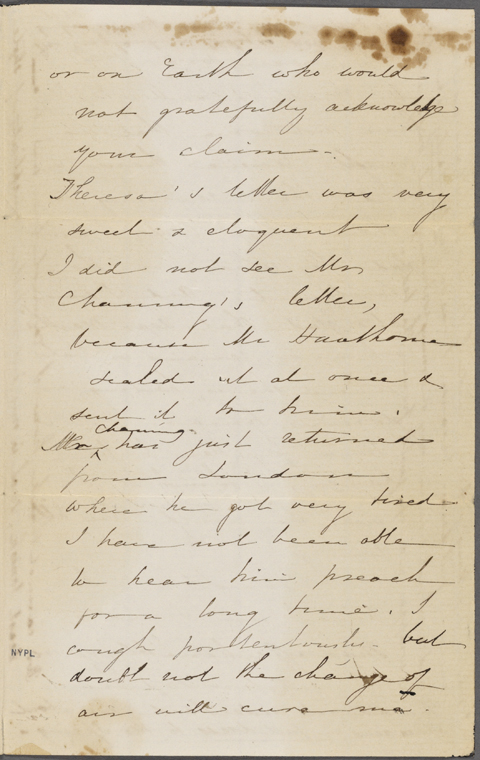 or on Earth who would
not gratefully acknowledge
your claim.
Theresa's letter was very
sweet & eloquent
I did not see Mr
Channing's letter,
because Mr Hawthorne
sealed it at once &
sent it to him.
Channing
Mr has just returned
from London
where he got very tired
I have not been able
to hear him preach
for a long time. I
cough portentously - but
doubt not the change of
air will cure me.
NYPL